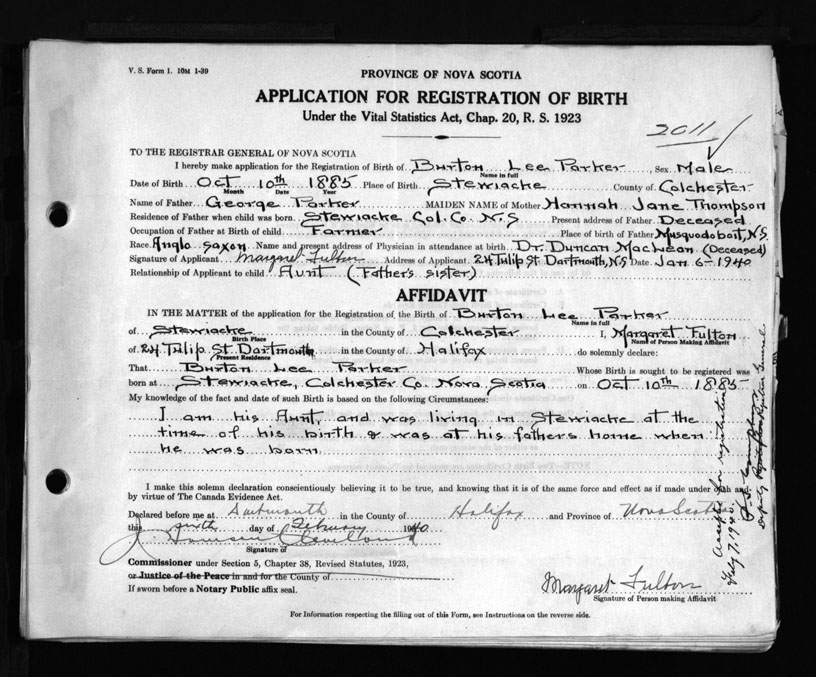 V. S. Form 1. 10M 1-39
PROVINCE OF NOVA SCOTIA
APPLICATION FOR REGISTRATION OF BIRTH
Under the Vital Statistics Act, Chap. 20, R. S. 1923
2011
TO THE REGISTRAR GENERAL OF NOVA SCOTIA
I hereby make application for the Registration of Birth of Burton Lee Parker Sex Male
Name in full
Date of Birth Oct 10th 1885 Place of Birth Stewiacke County of Colchester
Month Date Year
Name of Father George Parker MAIDEN NAME of Mother Hannah Jane Thompson
Residence of Father when child was born Stewiacke Col. Co. N.S Present address of Father Deceased
Occupation of Father at Birth of child Farmer Place of birth of Father Musquodoboit, N.S.
Race Anglo Saxon Name and present address of Physician in attendance at birth Dr. Duncan MacLean (Deceased)
Signature of Applicant Margaret Fulton Address of Applicant 24 Tulip St. Dartmouth, N.S Date Jan 6 - 1940
Relationship of Applicant to child Aunt (Father's sister)
AFFIDAVIT
IN THE MATTER of the application for the Registration of the Birth of Burton Lee Parker
Name in full
of Stewiacke in the County of Colchester I, Margaret Fulton
Birth Place Name of Person Making Affidavit
of 24 Tulip St. Dartmouth in the County of Halifax do solemnly declare:
Present Residence
That Burton Lee Parker Whose Birth is sought to be registered was
born at Stewiacke, Colchester Co. Nova Scotia on Oct 10th 1885
My knowledge of the fact and date of such Birth is based on the following Circumstances:
I am his Aunt, and was living in Stewiacke at the
time of his birth & was at his fathers home when
he was born
I make this solemn declaration conscientiously believing it to be true, and knowing that it is of the same force and effect as if made under oath and
by virtue of The Canada Evidence Act.
Declared before me at Dartmouth in the County of Halifax and Province of Nova Scotia
this sixth day of February 1940
Cleveland
Signature of
Commissioner under Section 5, Chapter 38, Revised Statutes, 1923,
or Justice of the Peace in and for the County of
If sworn before a Notary Public affix seal.
Margaret Fulton
Signature of Person making Affidavit
For Information respecting the filling out of this Form, see Instructions on the reverse side.
Accepted for registration
Feby 7. 1940.
Deputy Registrar General